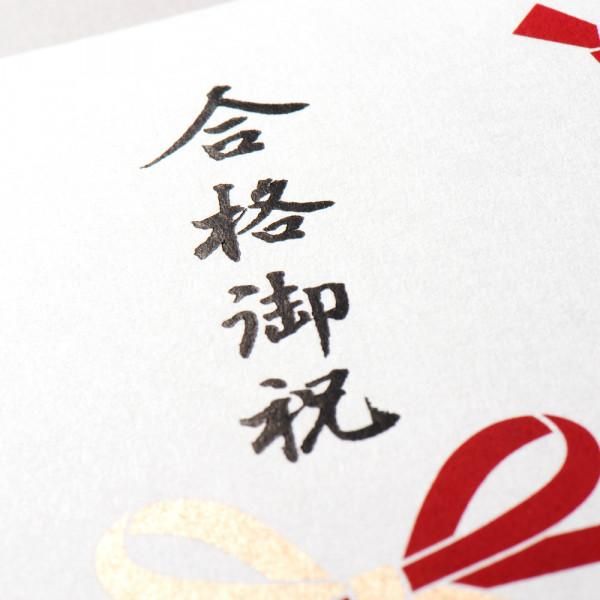 合格御祝